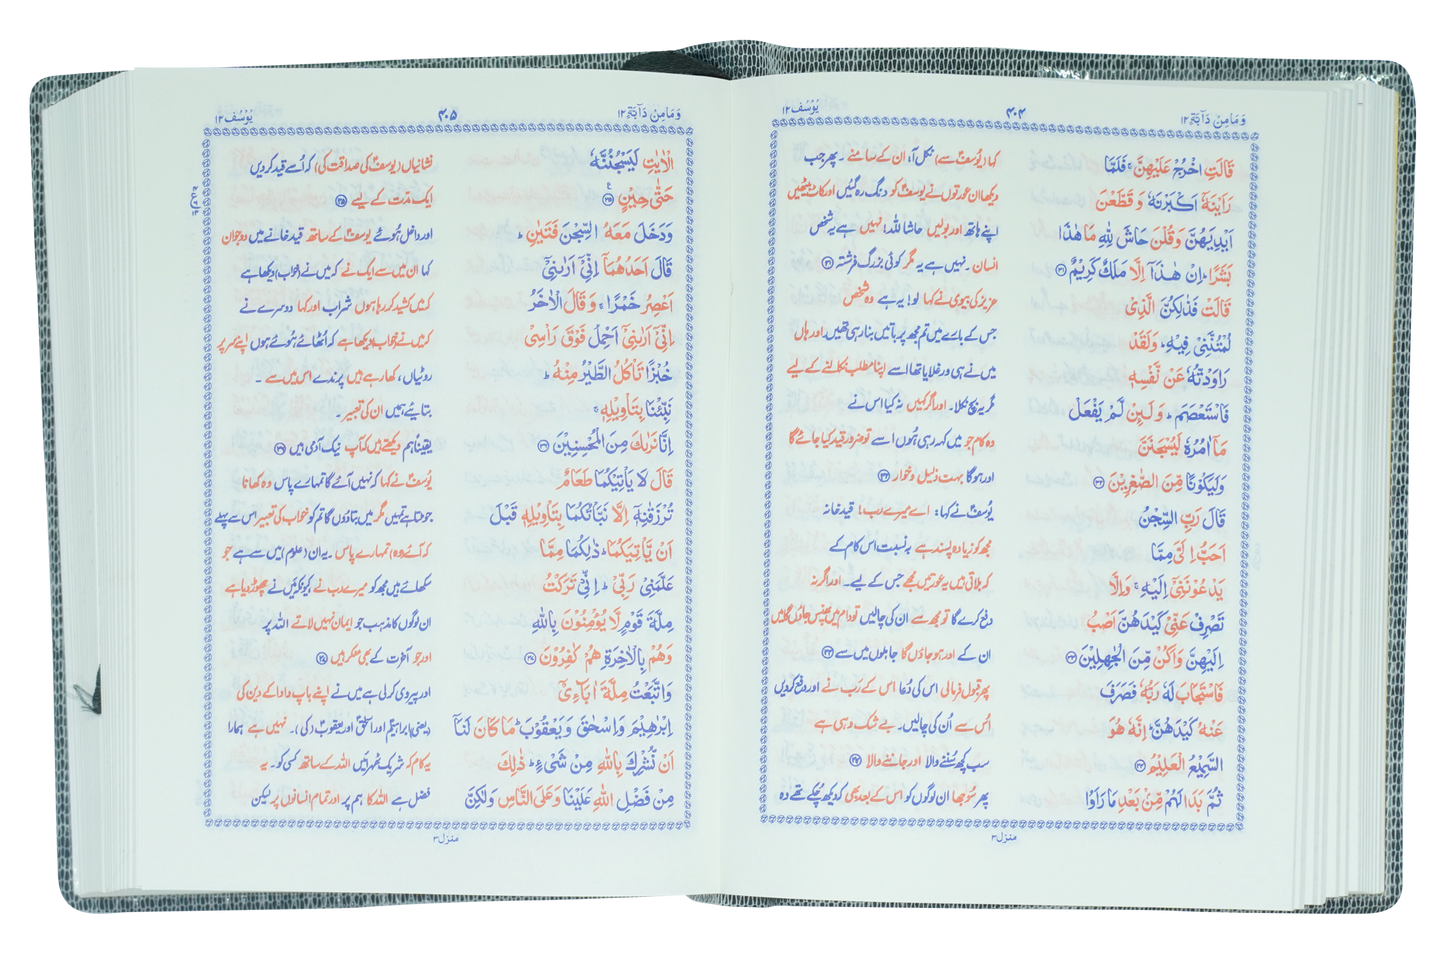 وَمَا مِنْ دَآبَّةٍ ١٢ ۴۰۴ یُوْسُف ١٢
قَالَتِ اخْرُجْ عَلَيْهِنَّ ۚ فَلَمَّا کہا (یُوسُفؑ سے) نکل آ، ان کے سامنے ۔ پھر جب
رَاَيْنَهٗۤ اَكْبَرْنَهٗ وَ قَطَّعْنَ دیکھا ان عورتوں نے یوسفؑ کو دنگ رہ گئیں اور کاٹ بیٹھیں
اَيْدِيَهُنَّ وَقُلْنَ حَاشَ لِلّٰهِ مَا هٰذَا اپنے ہاتھ اور بولیں حاشا للہ! نہیں ہے یہ شخص
بَشَرًا ؕ اِنْ هٰذَاۤ اِلَّا مَلَكٌ كَرِيْمٌ ﴿۳۱﴾ انسان ۔ نہیں ہے یہ مگر کوئی بزرگ فرشتہ ﴿۳۱﴾
قَالَتْ فَذٰلِكُنَّ الَّذِيْ عزیز کی بیوی نے کہا لو! یہ ہے وہ شخص
لُمْتُنَّنِيْ فِيْهِ ؕ وَلَقَدْ جس کے بارے میں تم مجھ پر باتیں بنا رہی تھیں، اور ہاں
رَاوَدْتُّهٗ عَنْ نَّفْسِهٖ میں نے ہی ورغلایا تھا اسے اپنا مطلب نکالنے کے لیے
فَاسْتَعْصَمَ ؕ وَلَىِٕنْ لَّمْ يَفْعَلْ مگر یہ بچ نکلا۔ اور اگر کہیں نہ کیا اس نے
مَاۤ اٰمُرُهٗ لَيُسْجَنَنَّ وہ کام جو میں کہہ رہی ہوں اسے تو ضرور قید کیا جائے گا
وَلَيَكُوْنًا مِّنَ الصّٰغِرِيْنَ ﴿۳۲﴾ اور ہو گا بہت ذلیل و خوار ﴿۳۲﴾
قَالَ رَبِّ السِّجْنُ یُوسُفؑ نے کہا: اے میرے رب! قید خانہ
اَحَبُّ اِلَيَّ مِمَّا مجھ کو زیادہ پسند ہے بہ نسبت اس کام کے
يَدْعُوْنَنِيْۤ اِلَيْهِ ۚ وَاِلَّا کہ بلاتی ہیں یہ عورتیں مجھے جس کے لیے۔ اور اگر نہ
تَصْرِفْ عَنِّيْ كَيْدَهُنَّ اَصْبُ دفع کرے گا تو مجھ سے ان کی چالیں تو دام میں پھنس جاؤں گا میں
اِلَيْهِنَّ وَاَكُنْ مِّنَ الْجٰهِلِيْنَ ﴿۳۳﴾ ان کے اور ہو جاؤں گا جاہلوں میں سے ﴿۳۳﴾
فَاسْتَجَابَ لَهٗ رَبُّهٗ فَصَرَفَ پھر قبول فرمالی اس کی دُعا اس کے رب نے اور دفع کر دیں
عَنْهُ كَيْدَهُنَّ ؕ اِنَّهٗ هُوَ اُس سے اُن کی چالیں۔ بے شک وہی ہے
السَّمِيْعُ الْعَلِيْمُ ﴿۳۴﴾ سب کچھ سُننے والا اور جاننے والا ﴿۳۴﴾
ثُمَّ بَدَا لَهُمْ مِّنْۢ بَعْدِ مَا رَاَوُا پھر سُوجھا ان لوگوں کو اس کے بعد بھی کہ دیکھ چُکے تھے وہ
منزل ۳
وَمَا مِنْ دَآبَّةٍ ١٢ ۴۰۵ یُوْسُف ١٢
الْاٰيٰتِ لَيَسْجُنُنَّهٗ نشانیاں (یوسفؑ کی صداقت کی) کہ اُسے قید کر دیں
حَتّٰى حِيْنٍ ﴿۳۵﴾ ایک مدّت کے لیے ﴿۳۵﴾
وَدَخَلَ مَعَهُ السِّجْنَ فَتَيٰنِ ؕ اور داخل ہُوئے یوسفؑ کے ساتھ قید خانے میں دو جوان
قَالَ اَحَدُهُمَاۤ اِنِّيْۤ اَرٰىنِيْۤ کہا ان میں سے ایک نے کہ میں نے (خواب) دیکھا ہے
اَعْصِرُ خَمْرًا ۚ وَقَالَ الْاٰخَرُ کہ میں کشید کر رہا ہوں شراب اور کہا دوسرے نے
اِنِّيْۤ اَرٰىنِيْۤ اَحْمِلُ فَوْقَ رَاْسِيْ کہ میں نے خواب دیکھا ہے کہ اُٹھائے ہُوئے ہوں اپنے سر پر
خُبْزًا تَاْكُلُ الطَّيْرُ مِنْهُ ؕ روٹیاں، کھا رہے ہیں پرندے اس میں سے ۔
نَبِّئْنَا بِتَاْوِيْلِهٖ ۚ بتائیے ہمیں ان کی تعبیر۔
اِنَّا نَرٰىكَ مِنَ الْمُحْسِنِيْنَ ﴿۳۶﴾ یقیناً ہم دیکھتے ہیں کہ آپ نیک آدمی ہیں ﴿۳۶﴾
قَالَ لَا يَاْتِيْكُمَا طَعَامٌ یُوسفؑ نے کہا کہ نہیں آئے گا تمہارے پاس وہ کھانا
تُرْزَقٰنِهٖۤ اِلَّا نَبَّاْتُكُمَا بِتَاْوِيْلِهٖ قَبْلَ جو ملتا ہے تمہیں مگر میں بتادوں گا تم کو خواب کی تعبیر اس سے پہلے
اَنْ يَّاْتِيَكُمَا ؕ ذٰلِكُمَا مِمَّا کہ آئے وہ تمہارے پاس ۔ یہ ان (علوم) میں سے ہے جو
عَلَّمَنِيْ رَبِّيْ ؕ اِنِّيْ تَرَكْتُ سکھائے ہیں مجھ کو میرے رب نے کیونکہ میں نے چھوڑ دیا ہے
مِلَّةَ قَوْمٍ لَّا يُؤْمِنُوْنَ بِاللّٰهِ ان لوگوں کا مذہب جو ایمان نہیں لاتے اللہ پر
وَهُمْ بِالْاٰخِرَةِ هُمْ كٰفِرُوْنَ ﴿۳۷﴾ اور جو آخرت کے بھی منکر ہیں ﴿۳۷﴾
وَاتَّبَعْتُ مِلَّةَ اٰبَآءِيْۤ اور پیروی کر لی ہے میں نے اپنے باپ دادا کے دین کی
اِبْرٰهِيْمَ وَاِسْحٰقَ وَيَعْقُوْبَ ؕ مَا كَانَ لَنَاۤ (یعنی) ابراہیمؑ اور اسحٰقؑ اور یعقوبؑ (کی)۔ نہیں ہے ہمارا
اَنْ نُّشْرِكَ بِاللّٰهِ مِنْ شَيْءٍ ؕ ذٰلِكَ یہ کام کہ شریک ٹھہرائیں اللہ کے ساتھ کسی کو۔ یہ
مِنْ فَضْلِ اللّٰهِ عَلَيْنَا وَعَلَى النَّاسِ وَلٰكِنَّ فضل ہے اللہ کا ہم پر اور تمام انسانوں پر لیکن
منزل ۳